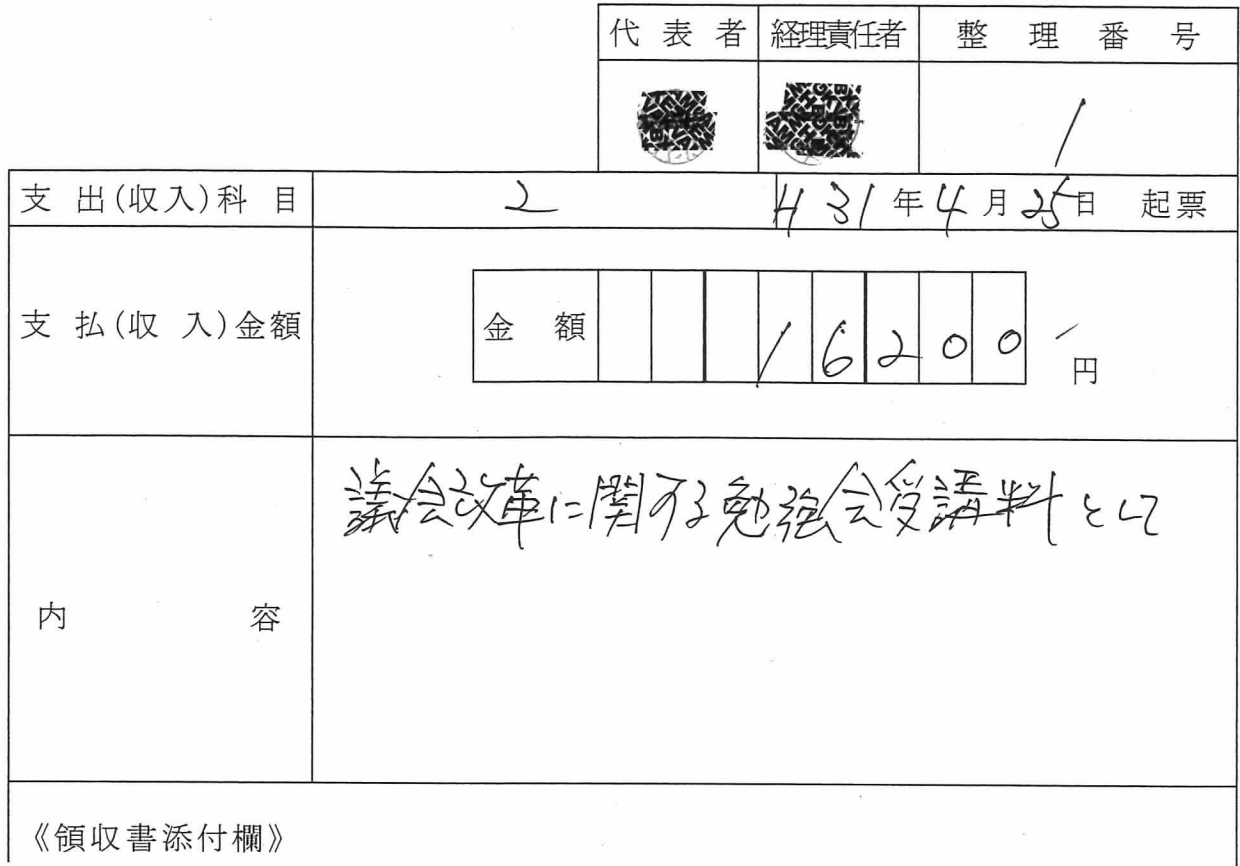 代表者 経理責任者 整理番号
1
支出(収入)科目 2 H31年4月25日 起票
支払(収入)金額 金額 16200 円
内容 議会改革に関する勉強会受講料として
《領収書添付欄》